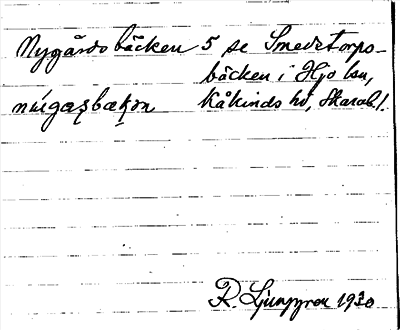 Nygårdsbäcken 5 se Smedstorps-
bäcken i Hjo lsn,
Kåkinds hd, Skarab.l.
R. Ljunggren 1930